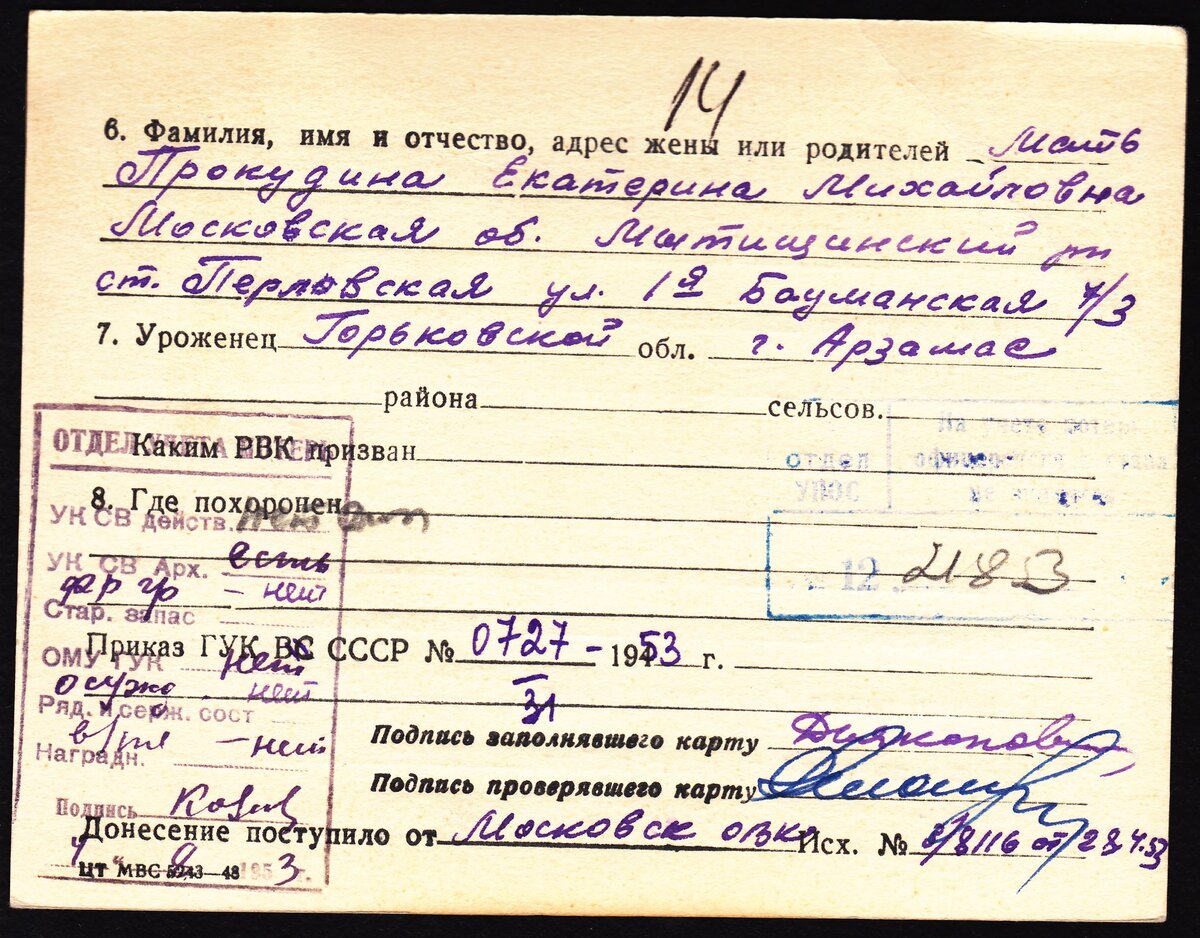 14
6. Фамилия, имя и отчество, адрес жены или родителей Мать
Прокудина Екатерина Михайловна
Московская об. Мытищинский рн
ст. Перловская ул. 1я Бауманская 7/3
7. Уроженец Горьковской обл. г. Арзамас
района сельсов.
Каким РВК призван
отдел
УПОС
ОТДЕЛ УЧЕТА ПОТЕРЬ
8. Где похоронен
УК СВ действ.
УК СВ Арх. есть
12 483
фр гр - нет
Стар. запас
Приказ ГУК ВС СССР № 0727 - 1953 г.
ОМУ ГУК нет
осужд. нет
31
Ряд. и серж. сост
Подпись заполнявшего карту
- нет
Наградн.
Подпись проверявшего карту
Подпись
Донесение поступило от Московск ОВК Исх. № 8/8116 от 28.4.53
1953 г.
ЦТ МВС 5943—48